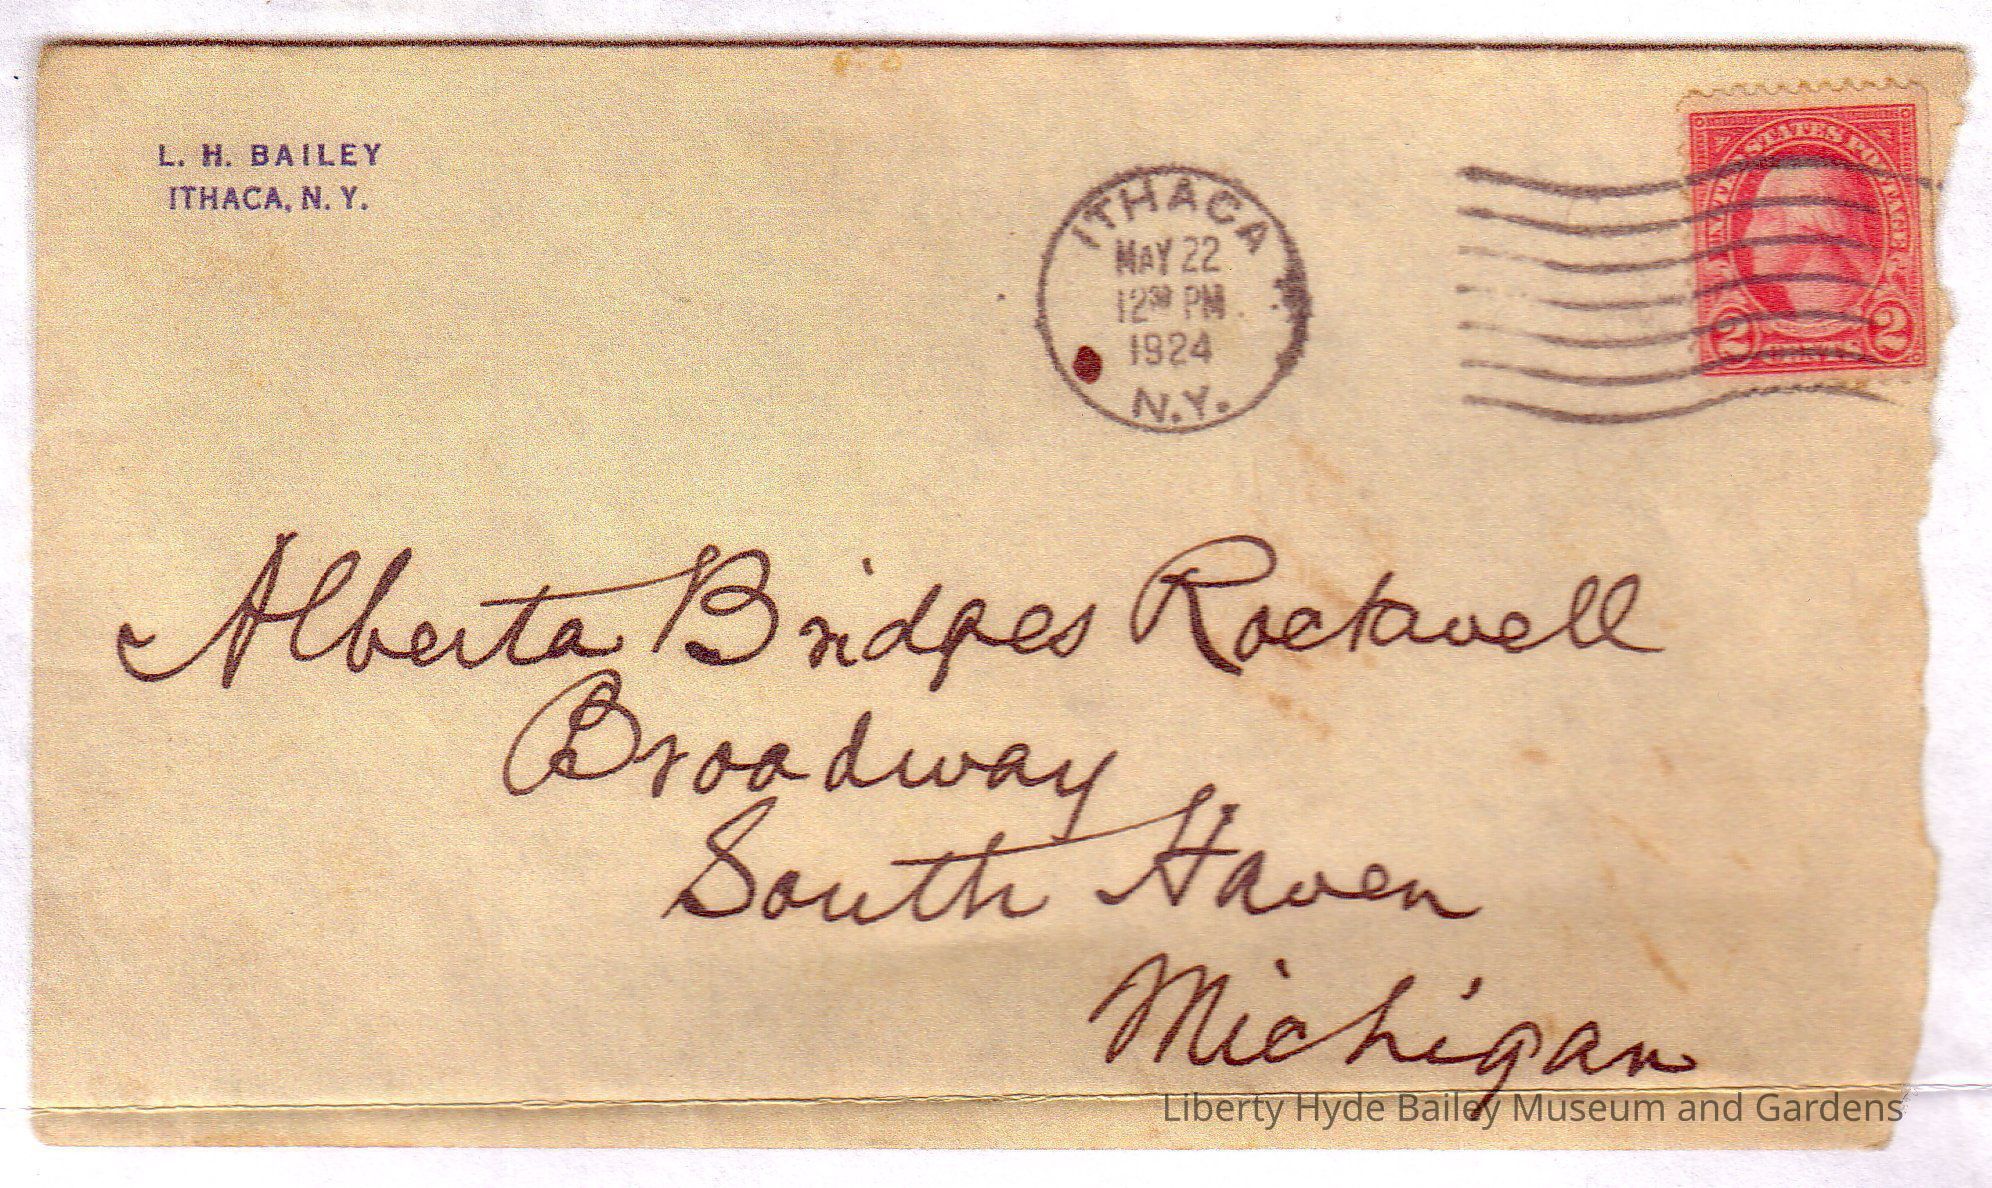 L. H. BAILEY
ITHACA, N. Y.
ITHACA
MAY 22
12³⁰ PM
1924
N.Y.
UNITED STATES POSTAGE
2 CENTS 2
Alberta Bridges Rockwell
Broadway
South Haven
Michigan
Liberty Hyde Bailey Museum and Gardens